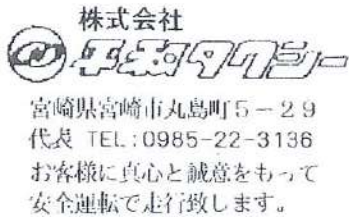 株式会社
平和タクシー
宮崎県宮崎市丸島町5-29
代表 TEL:0985-22-3136
お客様に真心と誠意をもって
安全運転で走行致します。